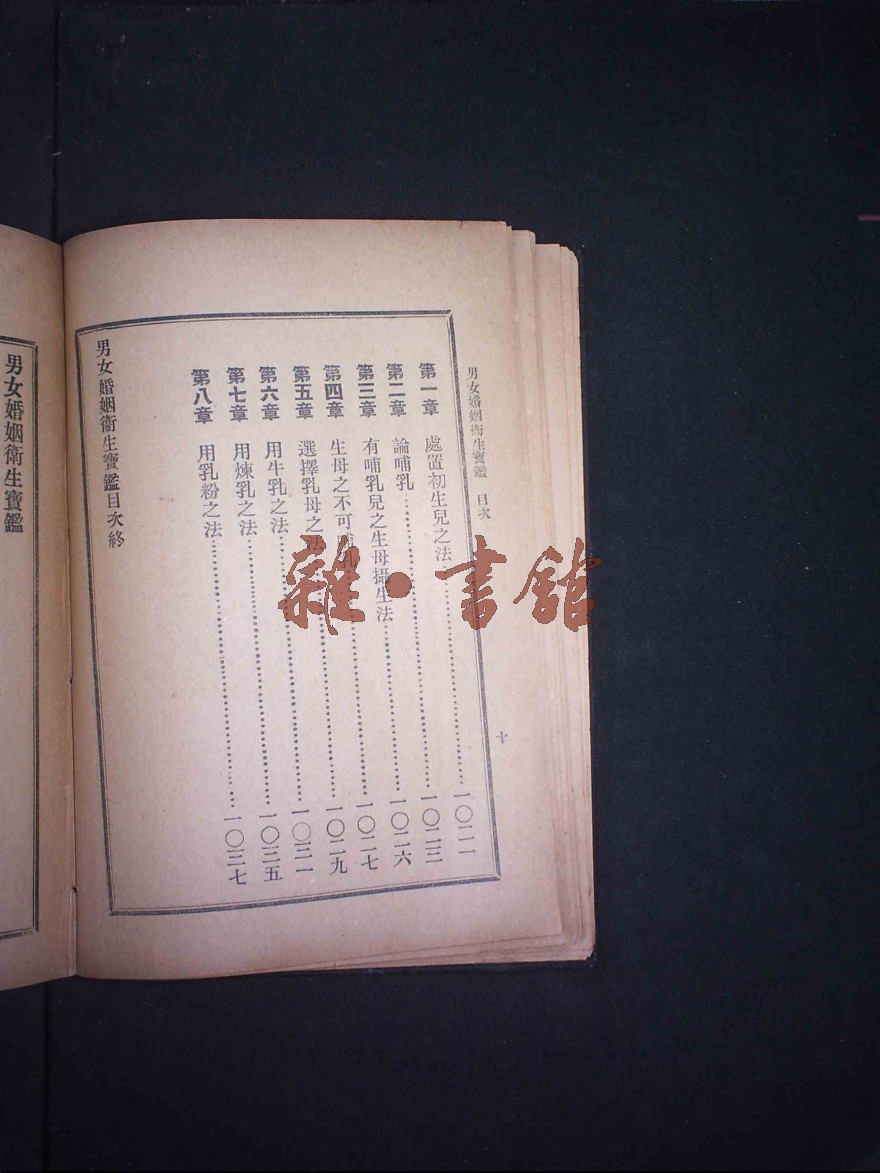 男女婚姻衞生寶鑑 目次 十
第一章 處置初生兒之法……一〇二一
第二章 論哺乳……一〇二三
第三章 有哺乳兒之生母攝生法……一〇二六
第四章 生母之不可哺乳……一〇二七
第五章 選擇乳母之法……一〇二九
第六章 用牛乳之法……一〇三一
第七章 用煉乳之法……一〇三五
第八章 用乳粉之法……一〇三七
男女婚姻衞生寶鑑目次終
男女婚姻衞生寶鑑
雜·書館